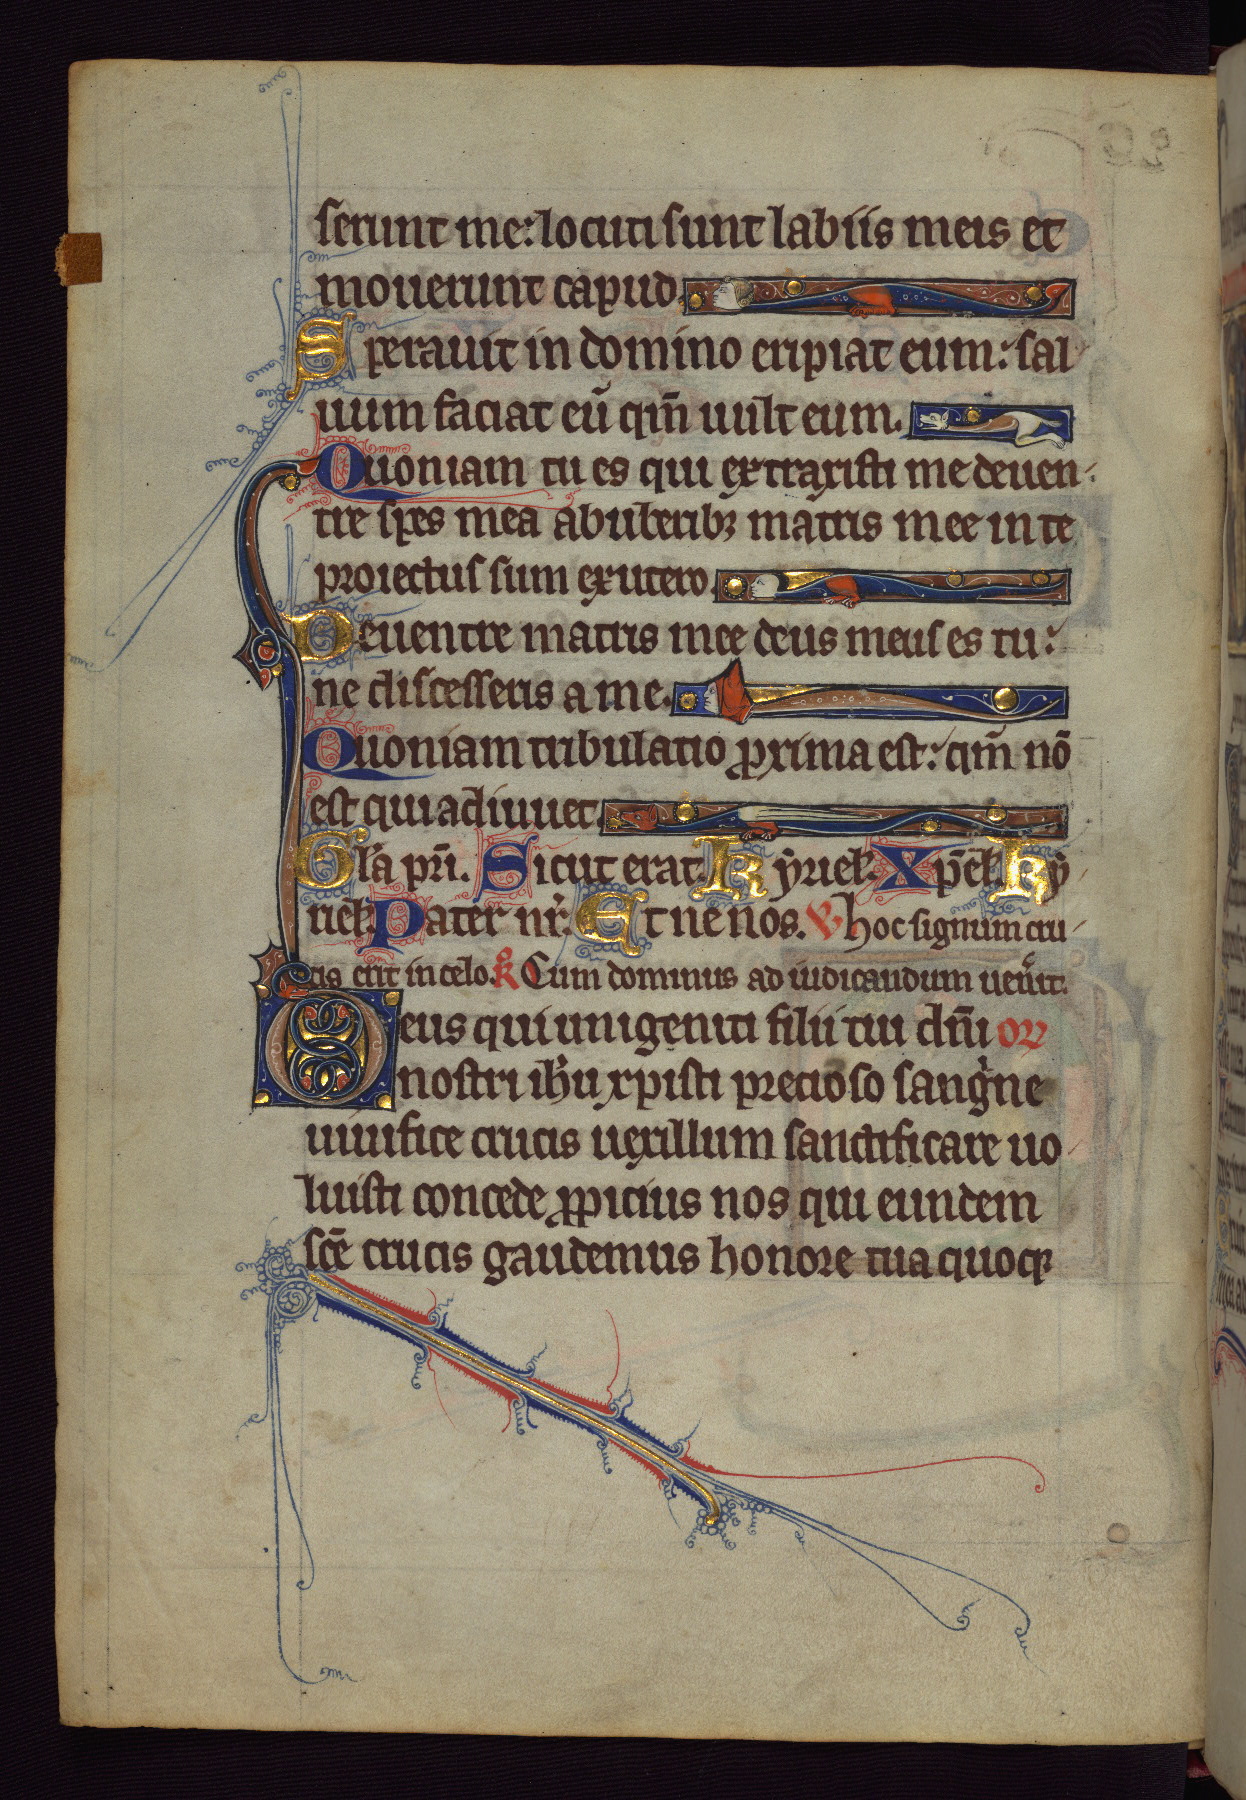 serunt me: locuti sunt labiis meis et
mouerunt capud.
Sperauit in domino eripiat eum: sal
uum faciat eū qm̄ uult eum.
Quoniam tu es qui extraxisti me deuen-
tre spes mea abuberibꝫ matris mee in te
proiectus sum exutero.
Deuentre matris mee deus meus es tu:
ne discesseris a me.
Quoniam tribulatio ꝓxima est: qm̄ nō
est qui adiuuet.
Gl̄a pr̄i. Sicut erat. Kyriel̄. Xp̄el̄. Ky
riel̄. Pater nr̄. Et ne nos. V hoc signum cru
cis erit in celo. R̄ Cum dominus ad iudicandum uen̄it.
Deus qui unigeniti filii tui dn̄i or
nostri ih̄u xpisti precioso sangⁱne
uiuifice crucis uexillum sanctificare uo
luisti concede ꝓpicius nos qui eundem
sc̄e crucis gaudemus honore tua quoqꝫ